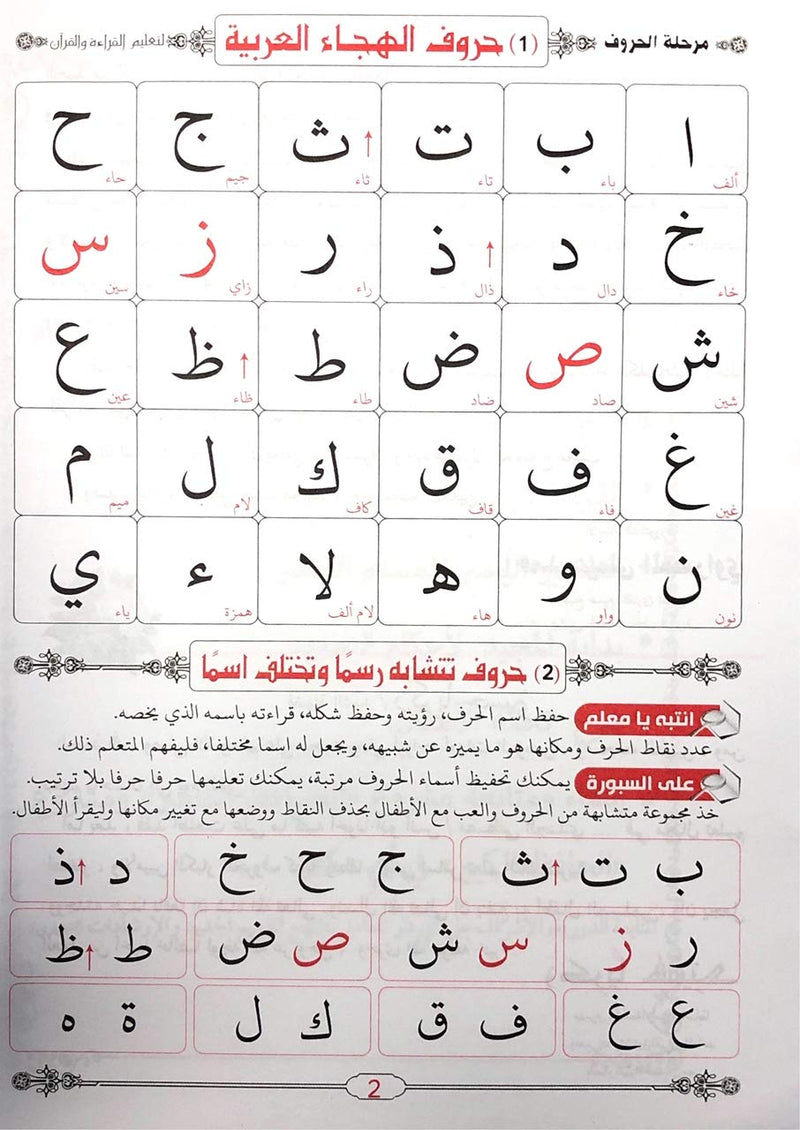 مرحلة الحروف
(1) حروف الهجاء العربية
لتعليم القراءة والقرآن
ا ب ت ث ج ح
ألف باء تاء ثاء جيم حاء
خ د ذ ر ز س
خاء دال ذال راء زاي سين
ش ص ض ط ظ ع
شين صاد ضاد طاء ظاء عين
غ ف ق ك ل م
غين فاء قاف كاف لام ميم
ن و ه لا ء ي
نون واو هاء لام ألف همزة ياء
(2) حروف تتشابه رسمًا وتختلف اسمًا
انتبه يا معلم حفظ اسم الحرف، رؤيته وحفظ شكله، قراءته باسمه الذي يخصه.
عدد نقاط الحرف ومكانها هو ما يميزه عن شبيهه، ويجعل له اسما مختلفا، فليفهم المتعلم ذلك.
على السبورة يمكنك تحفيظ أسماء الحروف مرتبة، يمكنك تعليمها حرفا حرفا بلا ترتيب.
خذ مجموعة متشابهة من الحروف والعب مع الأطفال بحذف النقاط ووضعها مع تغيير مكانها وليقرأ الأطفال.
ب ت ث ج ح خ د ذ
ر ز س ش ص ض ط ظ
ع غ ف ق ك ل ة ه
2